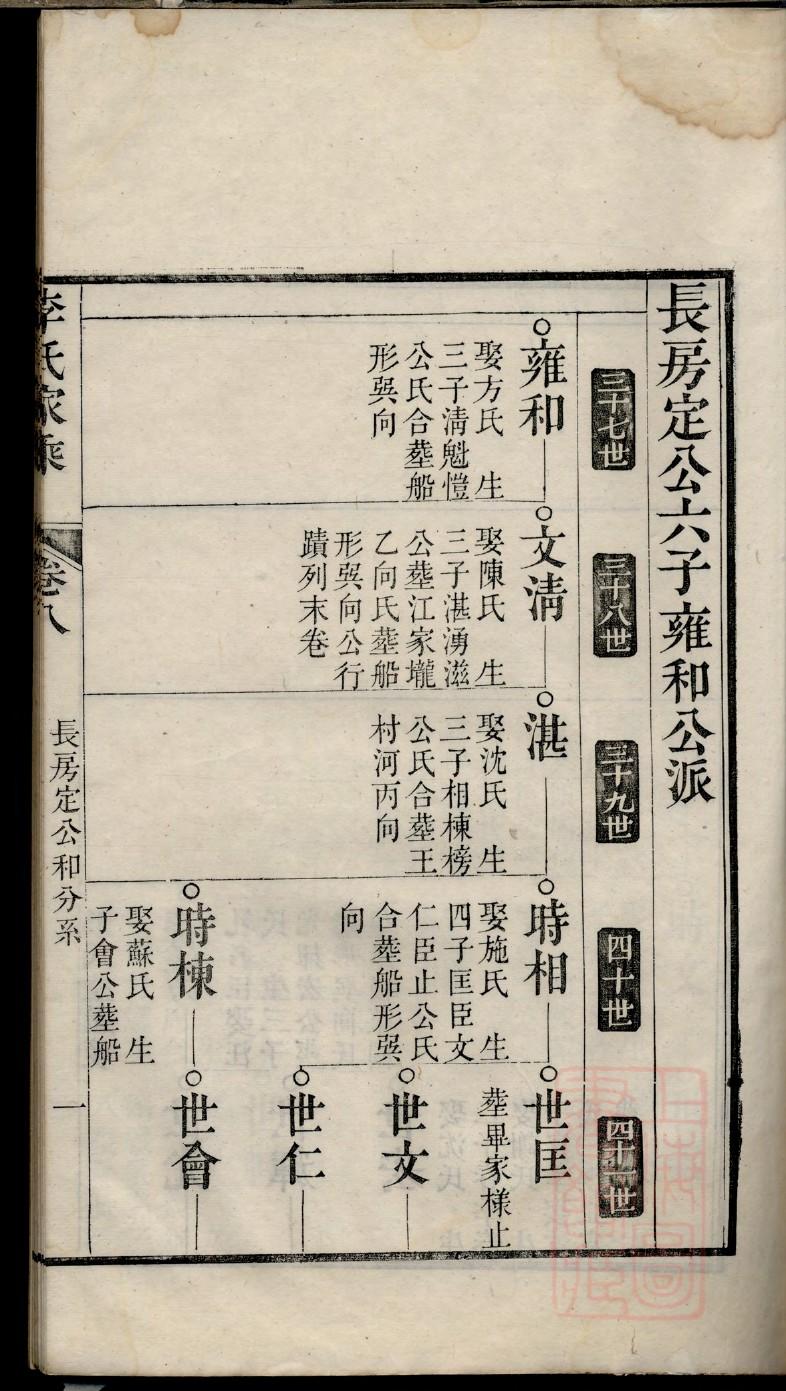 長房定公六子雍和公派
三十七世
三十八世
三十九世
四十世
四十一世
雍和
娶方氏 生
三子清魁愷
公氏合塟船
形巽向
文淸
娶陳氏 生
三子湛湧滋
公塟江家壠
乙向氏塟船
形巽向公行
蹟列末卷
湛
娶沈氏 生
三子相棟榜
公氏合塟王
村河丙向
時相
娶施氏 生
四子匡臣文
仁臣止公氏
合塟船形巽
向
時棟
娶蘇氏 生
子會公塟船
世匡
塟畢家樣止
世文
世仁
世會
李氏家乘
卷八
長房定公和分系
一